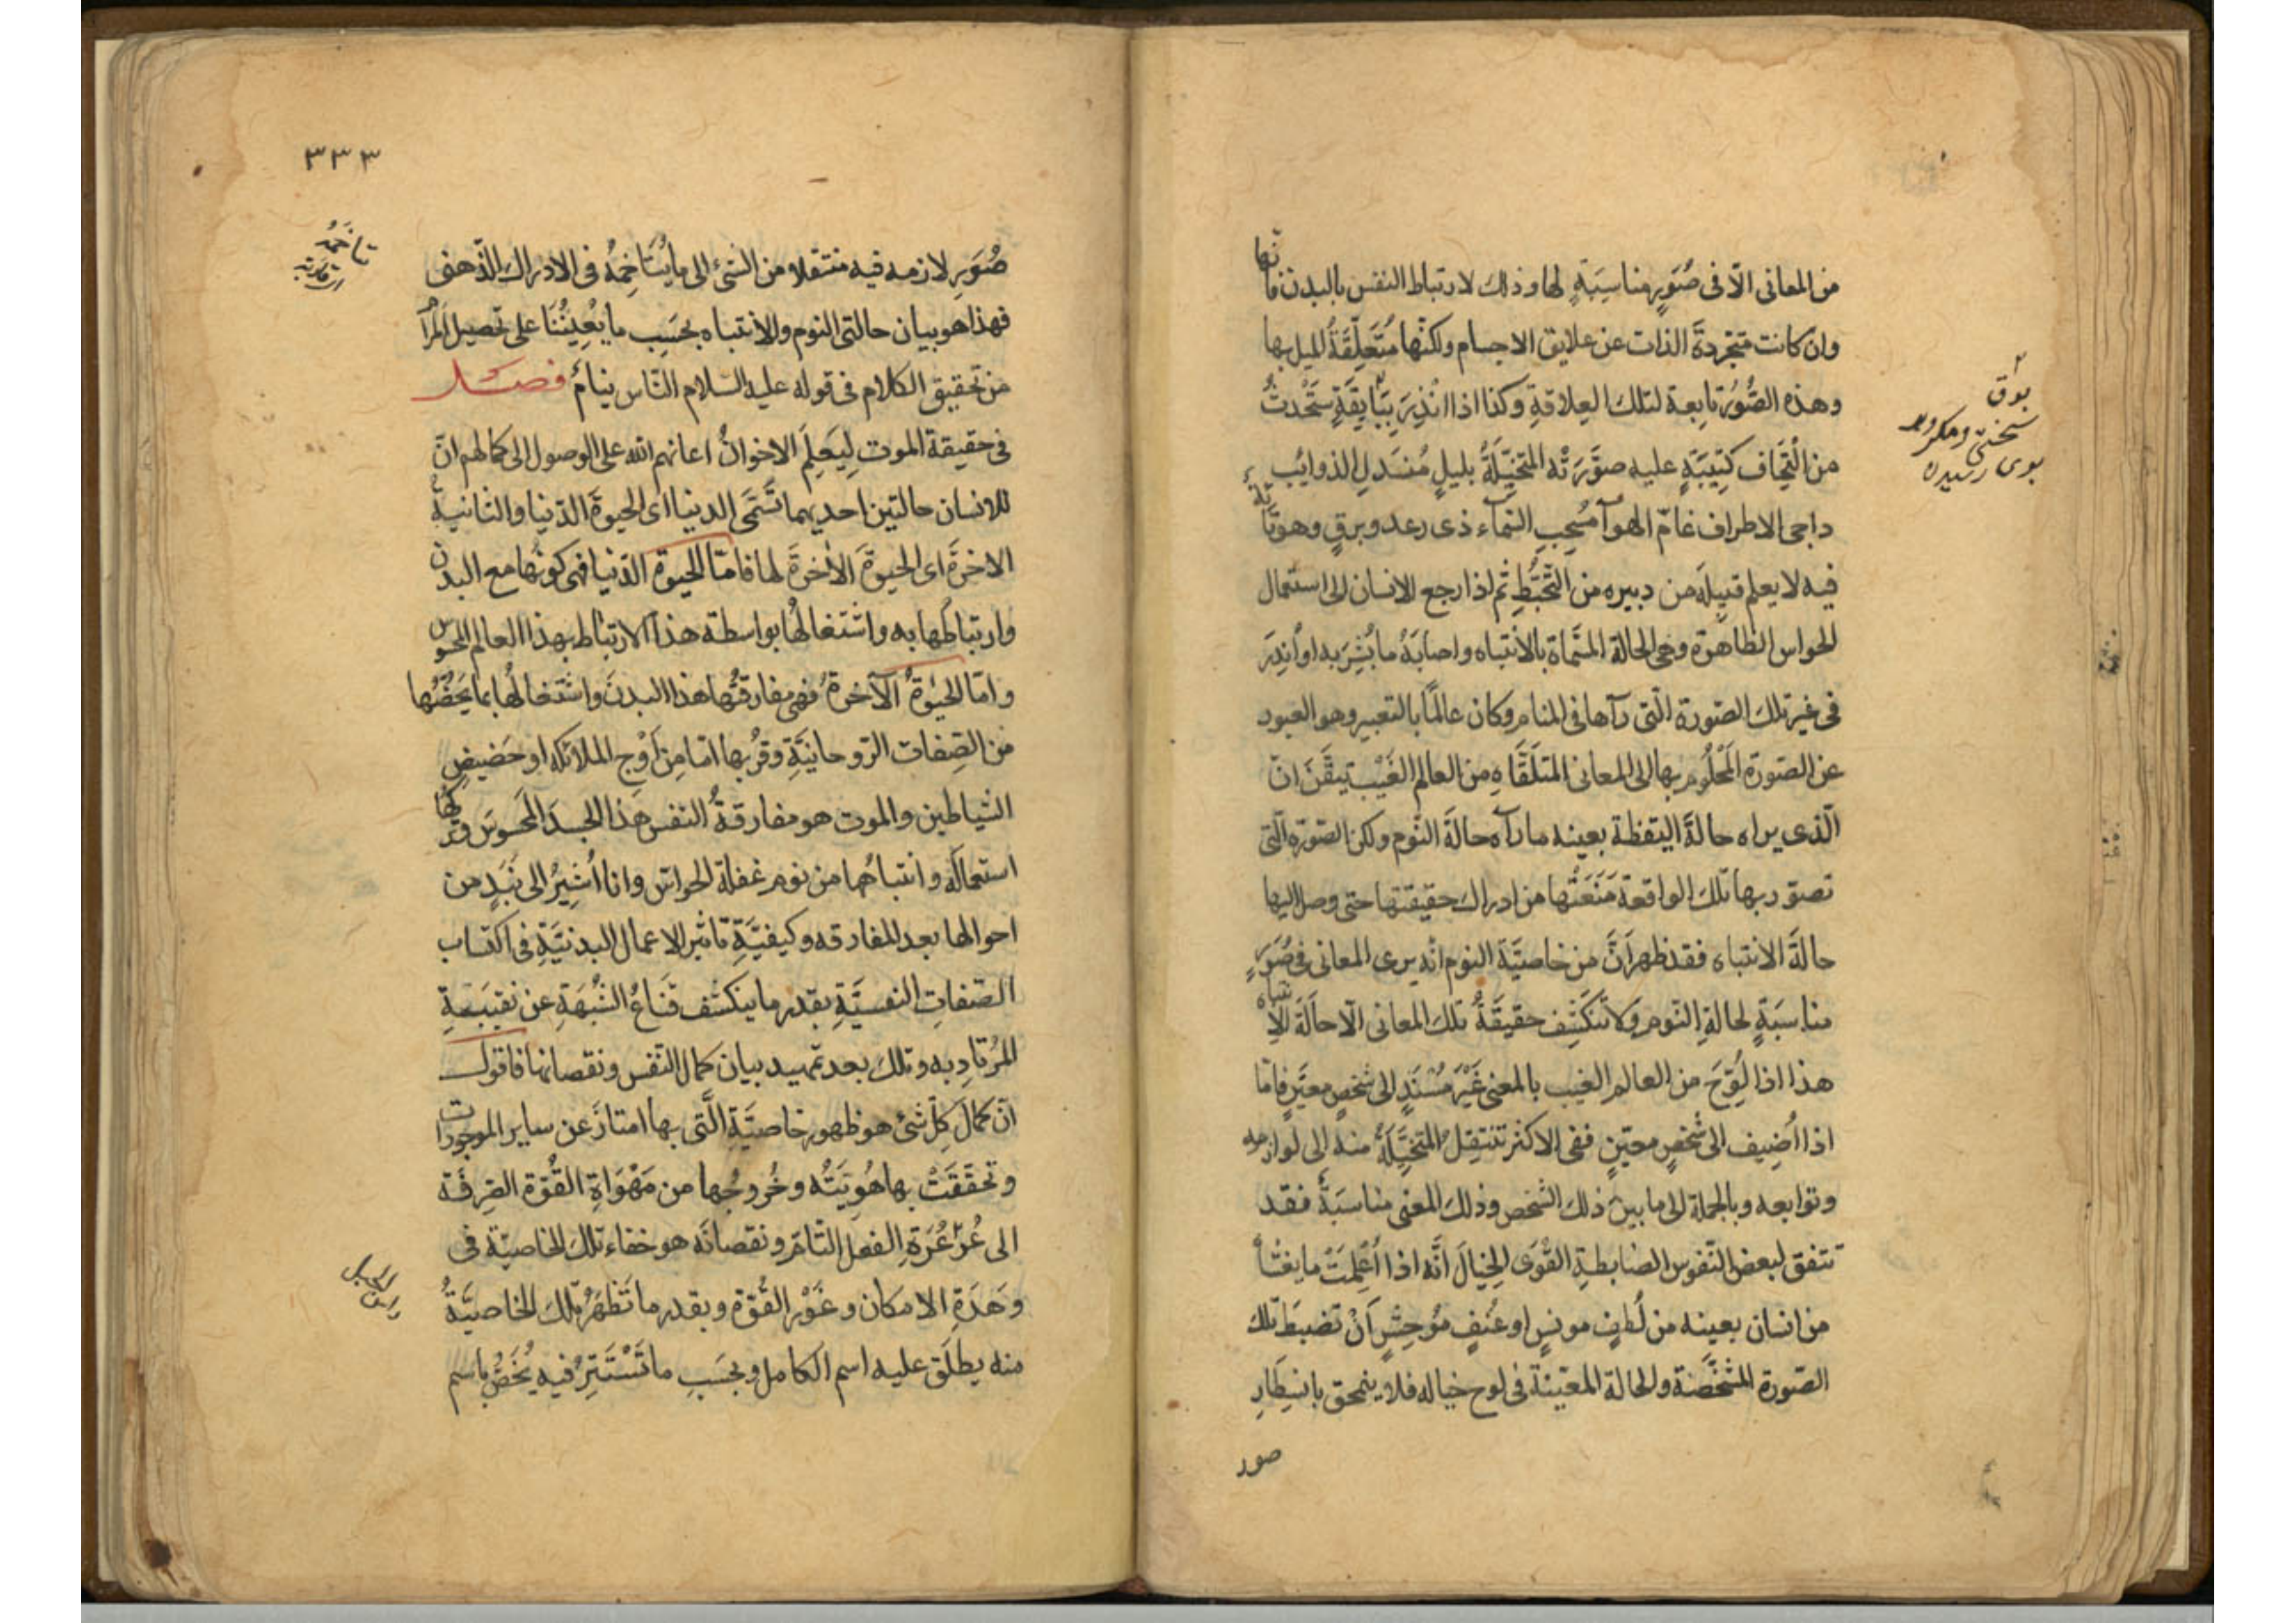 من المعانى الّا فى صُوَرٍ مناسِبَةٍ لها وذلك لارتباط النفس بالبدن فانّها
وان كانت متجرّدةَ الذات عن علايق الاجسام ولكنّها مُتَعلِّقَةٌ للميل بها
وهذه الصُّوَرُ تابعة لتلك العِلاقةِ وكذا اذا اُنْذِرَ بِبَايِقَةٍ سَتَحْدثُ
من الْتِحَاف كَتِيبَةٍ عليه صوَّرَتْه المتخيِّلَةُ بليلٍ مُنسَدِلِ الذوايُب
داجى الاطراف غامّ الهوآ مُسْحِبِ السّمآء ذى رعد وبرقٍ وهو تائهٌ
فيه لا يعلم قبيلَه من دبيره من التّخبُّطِ ثم اذا رجع الانسان الى استعمال
الحواس الظاهرة وهى الحالة المسمّاة بالانتباه واصابَهُ ما بُشِّرَ به او اُنذِرَ
فى غير تلك الصّورة الّتى رآها فى المنام وكان عالمًا بالتعبير وهو العبور
عن الصّورة المَحْلُوم بها الى المعانى المتلَقَّاةِ من العالم الغَيْب تيقَّنَ انّ
الّذى يراه حالةَ اليقظة بعينه ما رآه حالةَ النّوم ولكن الصّورة الّتى
تصوّر بها تلك الواقعة مَنَعَتْها من ادراك حقيقتها حتى وصل اليها
حالةَ الانتباه فقد ظهر اَنَّ من خاصيَّة النوم انّه يرى المعانى فى صُوَرٍ
مناسَبَةٍ لحالةِ النّوم ولا تَنكَشِف حقيقَةُ تلك المعانى الّا حالَةَ الانتباه
هذا اذا لُوِّحَ من العالم الغيب بالمعنى غَيْرَ مُسْنَدٍ الى شخصٍ معيَّنٍ فامّا
اذا اُضِيف الى شخصٍ معيّنٍ ففى الاكثر تنتقِلُ المتخيِّلَةُ منه الى لوازمه
وتوابعه وبالجملة الى ما بين ذلك الشخص وذلك المعنى مناسَبَةٌ فقد
تتفق لبعض النّفوس الضابطةِ القُوَى الِخيالَ اَنَّه اذا اُعْلِمَتْ ما يغشأ
من انسان بعينه من لُطفٍ مونسٍ او عُنفٍ مُوحِشٍ اَنْ تضبطَ تلك
الصّورة المشخَّصَةَ والحالة المعيّنة فى لوح خياله فلا ينمحق بانسِطَارِ
صور
بوٰق
سختى ومكروه
بوى رسيده
٣٣٣
صُوَرٍ لازمه فيه منتقلا من الشئ الى ما يُتَاخِمُهُ فى الادراك الذّهنى
فهذا هو بيان حالتى النوم والانتباه بحَسَبِ ما يُعِينُنَا على تحصيل المُرآ
من تحقيق الكلام فى قوله عليه السّلام النّاس نيامٌ فصل
فى حقيقة الموت لِيَعلِمَ الاخوانُ اعانهم الله على الوصول الى كمالهم انّ
للانسان حالتين احديهما تُسَمَّى الدنيا اى الحيوةَ الدّنيا والثانيةُ
الاخرَةَ اى الحيوةَ الاٰخرَةَ لها فامّا الحيوة الدّنيا فهى كونُها مع البدن
وارتباطُها به واشتغالُها بواسطة هذا الارتباط بهذا العالم المحسوس
وامّا الحيٰوةُ الآخرةُ فهى مفارقتُها هذا البدنَ واشتغالُها بما يَخُصُّها
من الصِّفات الرّوحانيَّةِ وقرُبها امّا مِن اَوْجِ الملائكه او حَضيضِ
الشياطين والموت هو مفارقةُ النفسِ هذا الجسدَ المحسوسَ وتركها
استعماله وانتباهُها من نوم غفلة الحواسّ وانا اُشِيرُ الى نَبَذٍ من
احوالها بعد المفارقه وكيفيَّةِ تاثير الاعمال البدنيَّةِ فى اكتساب
الصّفاتِ النفسيَّةِ بقدر ما ينكشف قناعُ الشُّبْهَةِ عن نقيبَةِ
المُرتادِ به وتلك بعد تمهيد بيان كمال النّفس ونقصانها فاقول
انّ كمالَ كلِّ شئ هو ظهور خاصيَّةِ الَّتى بها امتازَ عن ساير الموجودات
وتحقَّقَتْ بها هُويَّتُه وخُروجُها من مَهْوَاةِ القُوّة الصِّرفَة
الى عُرْعُرَةِ الفعل التّامّ ونقصانَه هو خفاء تلك الخاصيّة فى
وَهَدَةِ الامكان وغَوْرِ القُوّة وبقدر ما تَظهَرُ تلك الخاصيَّةُ
منه يطلَق عليه اسم الكامل وبحَسَبِ ما تَسْتَتِرُ فيه يُخَصُّ باسم